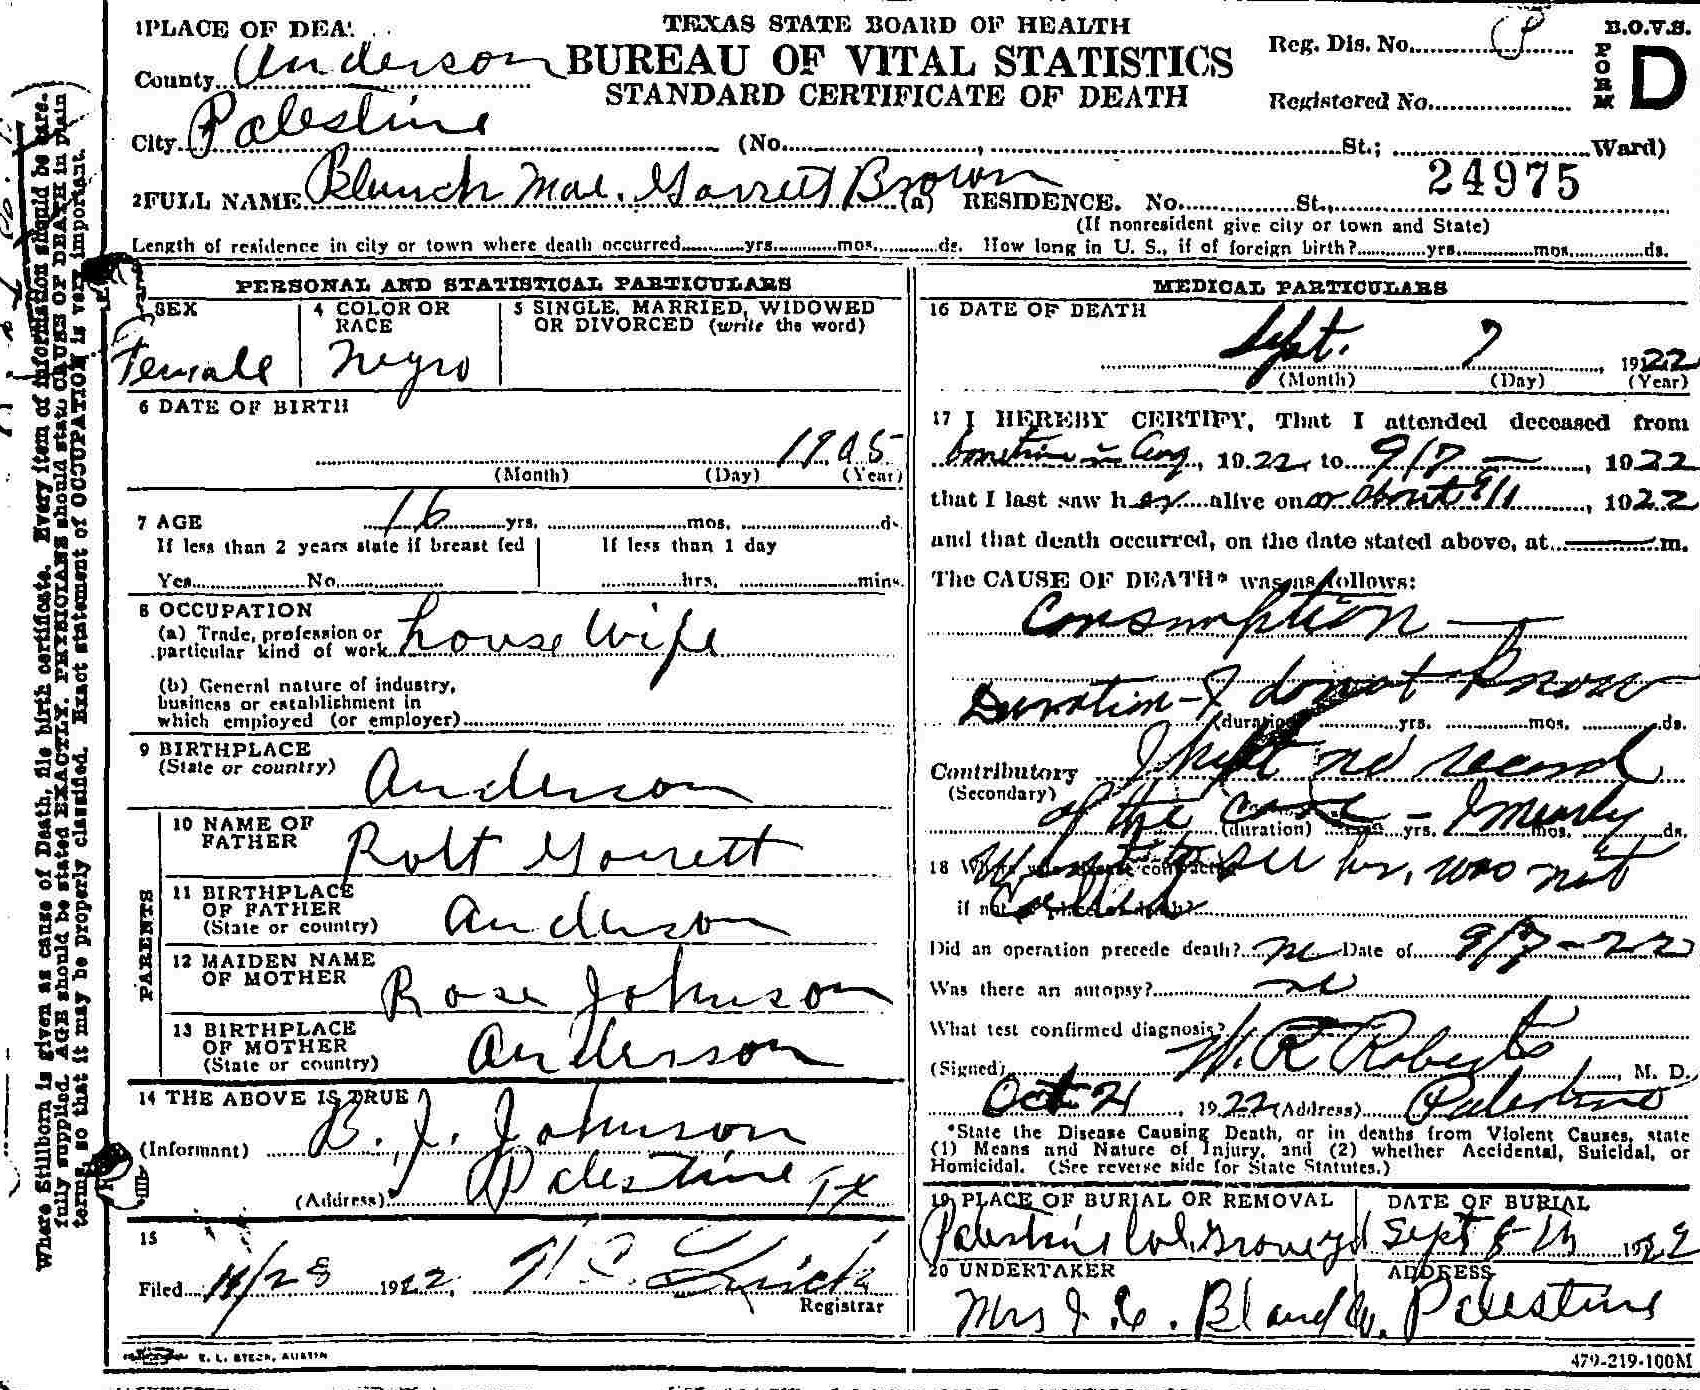 1PLACE OF DEA
TEXAS STATE BOARD OF HEALTH
BUREAU OF VITAL STATISTICS
STANDARD CERTIFICATE OF DEATH
Reg. Dis. No.
B.O.V.S.
FORM D
County Anderson
Registered No.
City Palestine (No. , St.; Ward)
24975
2FULL NAME Blanch Mae. Garrett Brown (a) RESIDENCE. No. St.,
(If nonresident give city or town and State)
Length of residence in city or town where death occurred yrs. mos. ds. How long in U. S., if of foreign birth? yrs. mos. ds.
Where Stillborn is given as cause of Death, file birth certificate. Every item of information should be care-
fully supplied. AGE should be stated EXACTLY. PHYSICIANS should state CAUSE OF DEATH in plain
terms, so that it may be properly classified. Exact statement of OCCUPATION is very important.
PERSONAL AND STATISTICAL PARTICULARS
SEX
Female
4 COLOR OR RACE
Negro
5 SINGLE, MARRIED, WIDOWED
OR DIVORCED (write the word)
6 DATE OF BIRTH
1905
(Month) (Day) (Year)
7 AGE 16 yrs. mos. d
If less than 2 years state if breast fed
If less than 1 day
Yes No hrs. mins.
8 OCCUPATION
(a) Trade, profession or
particular kind of work house Wife
(b) General nature of industry,
business or establishment in
which employed (or employer)
9 BIRTHPLACE
(State or country) Anderson
PARENTS
10 NAME OF
FATHER Robt Garrett
11 BIRTHPLACE
OF FATHER
(State or country) Anderson
12 MAIDEN NAME
OF MOTHER Rose Johnson
13 BIRTHPLACE
OF MOTHER
(State or country) Anderson
14 THE ABOVE IS TRUE
(Informant) B. J. Johnson
(Address) Palestine Tx
15
Filed 11/28 1922,
Registrar
MEDICAL PARTICULARS
16 DATE OF DEATH
Sept. 7, 1922
(Month) (Day) (Year)
17 I HEREBY CERTIFY, That I attended deceased from
sometime in Aug, 1922, to 9/7 — , 1922
that I last saw her alive on or about 9/1, 1922
and that death occurred, on the date stated above, at — m.
The CAUSE OF DEATH* was as follows:
Consumption —
Duration - I do not know
(duration) yrs. mos. ds.
Contributory I kept no record
(Secondary)
of the case - I mearly
(duration) yrs. mos. ds.
18 Where was disease contracted
Went to see her, was not
if not at place of death?
Called
Did an operation precede death? no Date of 9/7-22
Was there an autopsy? no
What test confirmed diagnosis?
(Signed) W. R Roberts, M. D.
Oct 21, 1922 (Address) Palestine
*State the Disease Causing Death, or in deaths from Violent Causes, state
(1) Means and Nature of Injury, and (2) whether Accidental, Suicidal, or
Homicidal. (See reverse side for State Statutes.)
19 PLACE OF BURIAL OR REMOVAL
Palestine Col. Graveyd
DATE OF BURIAL
Sept 8 th 1922
20 UNDERTAKER
ADDRESS
Palestine
E. L. STECK, AUSTIN
479-219-100M